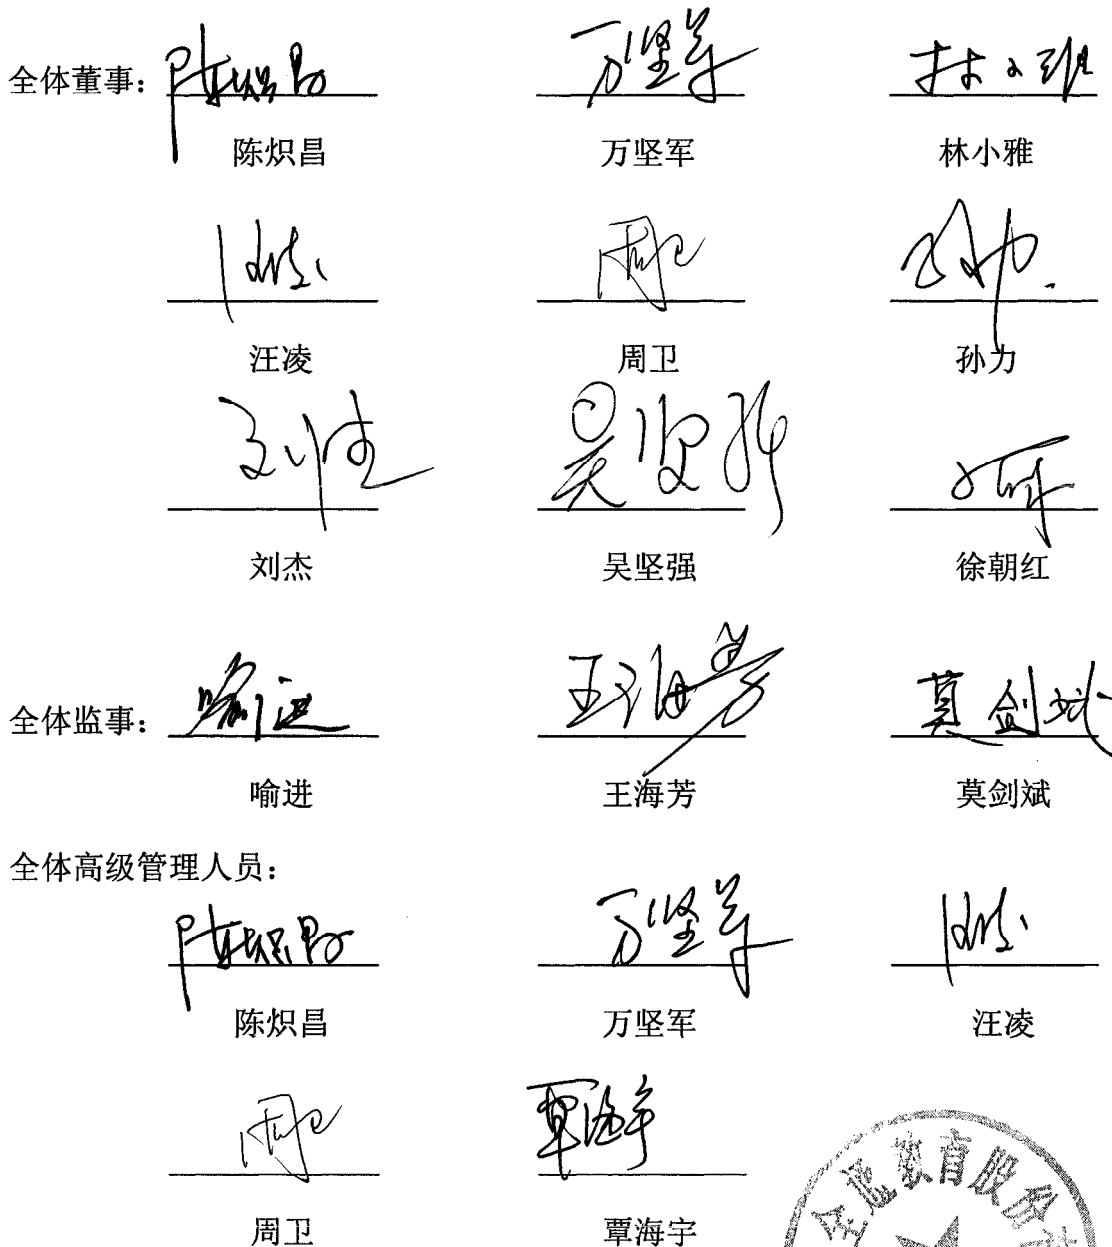 全体董事：
陈炽昌 万坚军 林小雅
汪凌 周卫 孙力
刘杰 吴坚强 徐朝红
全体监事：
喻进 王海芳 莫剑斌
全体高级管理人员：
陈炽昌 万坚军 汪凌
周卫 覃海宇
全通教育股份